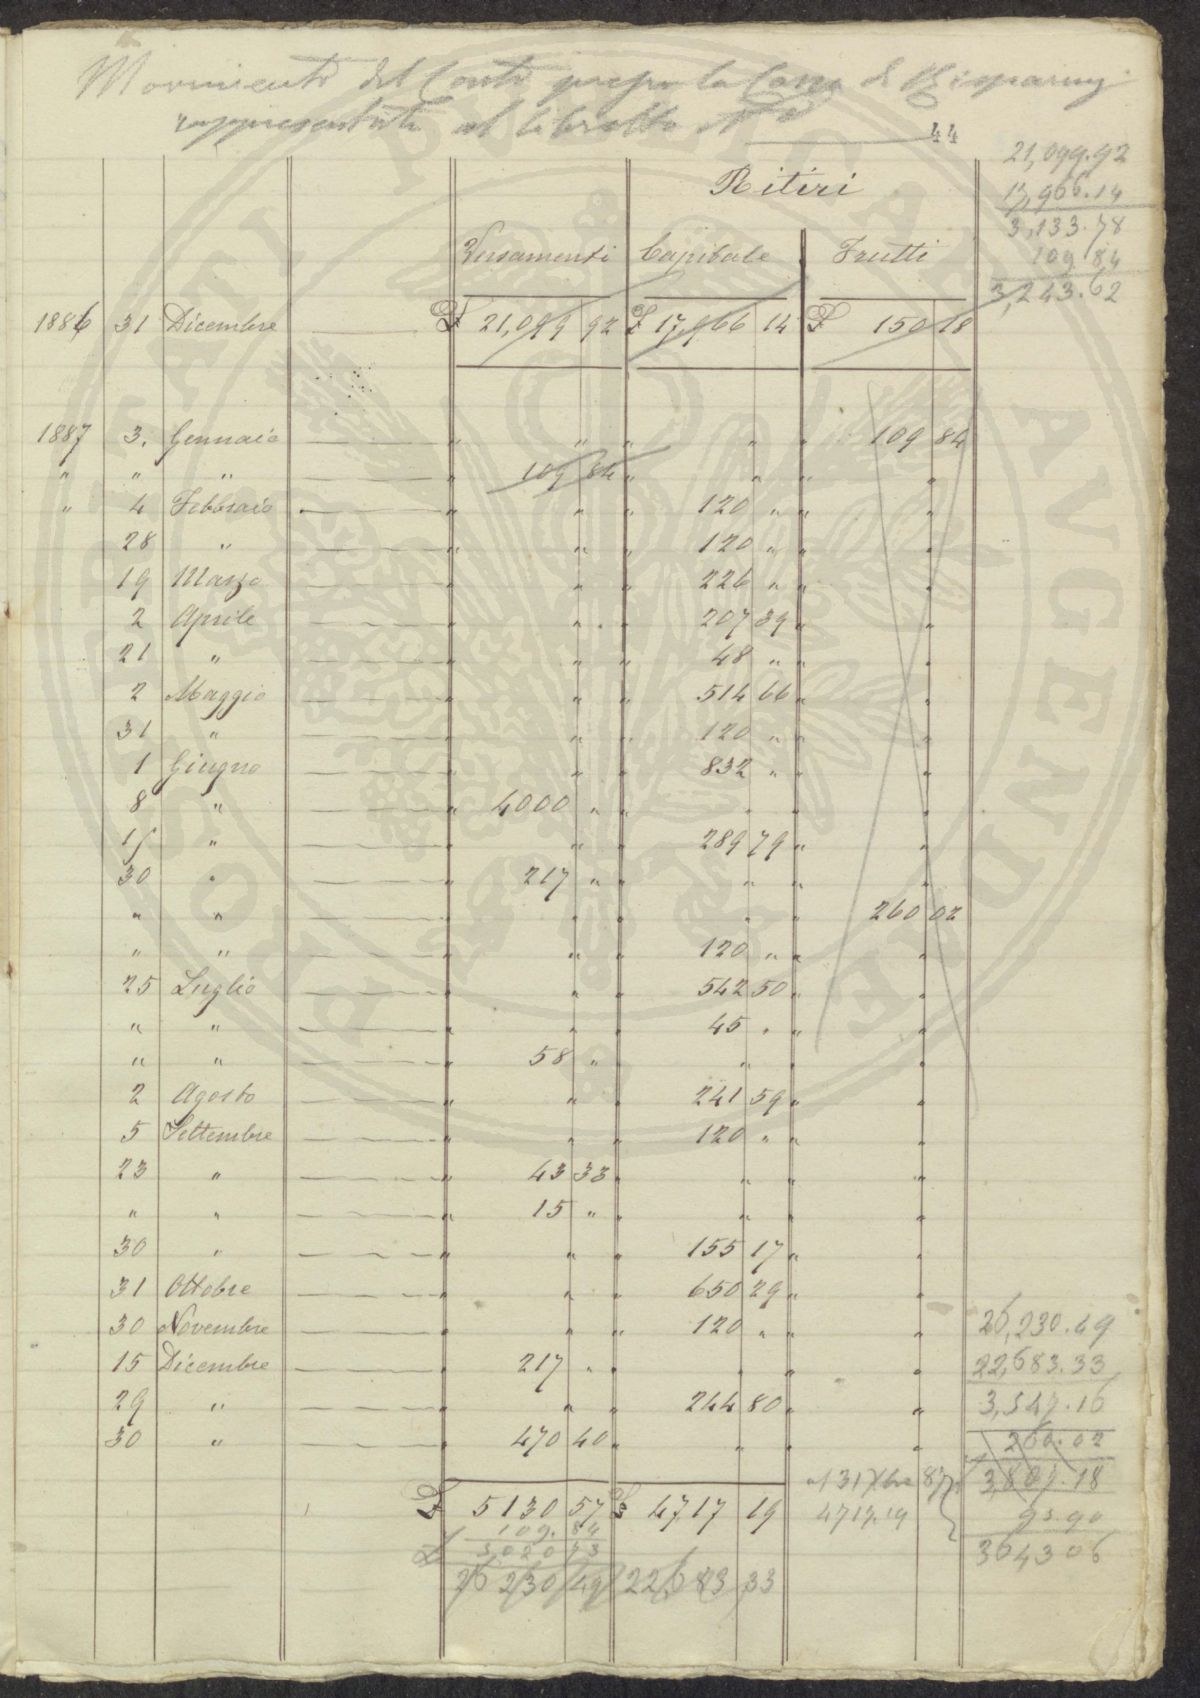 Movimenti del Conto presso la Cassa di Risparmij
rappresentato al libretto N.º 44
21,099.92
17,966.14
3,133.78
109 84
3,243.62
Ritiri
Versamenti Capitale Frutti
1886 31 Dicembre £ 21,099 92 £ 17,966 14 £ 150 18
1887 3. Gennaio " " " " " 109 84
" " " " 109 84 " " " "
" 4 Febbraio " " " 120 " " "
28 " " " " 120 " " "
19 Marzo " " " 226 " " "
2 Aprile " " " 207 39 " "
21 " " " " 48 " " "
2 Maggio " " " 514 66 " "
31 " " " " 120 " " "
1 Giugno " " " 832 " " "
8 " " 4000 " " " " "
15 " " " " 289 79 " "
30 " " 217 " " " " "
" " " " " " " 260 02
" " " " " 120 " " "
25 Luglio " " " 542 50 " "
" " " " " 45 " " "
" " " 58 " " " " "
2 Agosto " " " 241 59 " "
5 Settembre " " " 120 " " "
23 " " 43 33 " " " "
" " " 15 " " " " "
30 " " " " 155 17 " "
31 Ottobre " " " 650 29 " "
30 Novembre " " " 120 " " "
15 Dicembre " 217 " " " " "
29 " " " " 244 80 " "
30 " " 470 40 " " " "
26,230.49
22,683.33
3,547.16
260.02
3,807.18
95.90
3643 06
£ 5130 57 £ 4717 19
al 31 Xbre 87
4717.19
109.84
5,020 73
26 230 49 22,683 33
PROSPERITATI PUBLICAE AVGENDAE